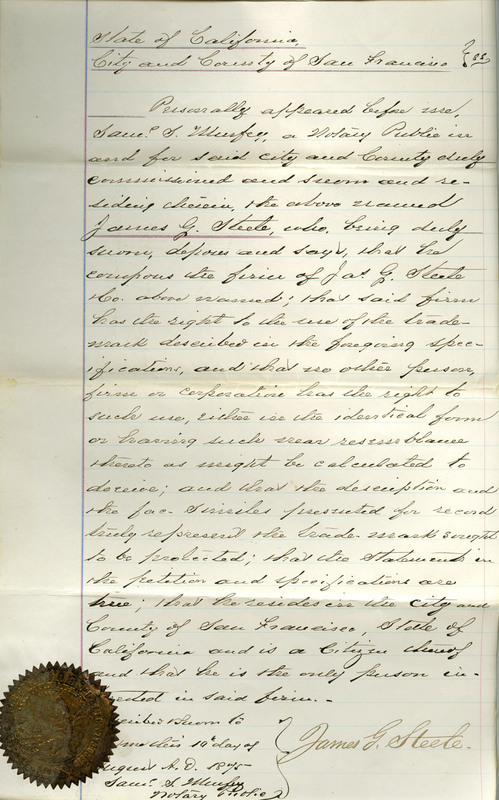 State of California,
City and County of San Francisco } ss
Personally appeared before me,
Saml S. Murfey, a Notary Public in
and for said city and County duly
commissioned and sworn and re-
siding therein, the above named
James G. Steele, who, being duly
sworn, deposes and says, that he
compous the firm of Jas G. Steele
& Co. above named; that said firm
has the right to the use of the trade-
mark described in the foregoing spec-
ifications, and that no other person,
firm or corporation has the right to
such use, either in the identical form
or having such near resemblance
thereto as might be calculated to
deceive; and that the description and
the fac-similes presented for record
truly represent the trade-mark sought
to be protected; that the statements in
the petition and specifications are
true; that he resides in the city and
County of San Francisco State of
California and is a Citizen thereof
and that he is the only person in-
rested in said firm.-
scribed & sworn to
me this 19th day of
August A.D. 1875
Saml S. Murfey
Notary Public
James G. Steele.